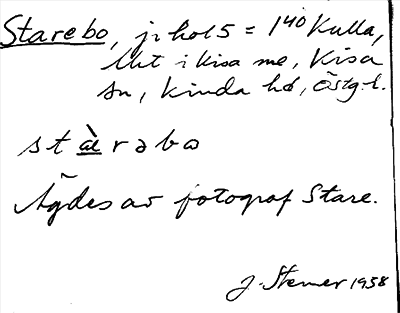 Starebo, jr hol 5 = 1⁴⁰ Kulla,
Utt i Kisa me, Kisa
sn, Kinda hd, Östg. l.
st à̱e̱ r ə b ω
Ägdes av fotograf Stare.
J. Stemer 1938